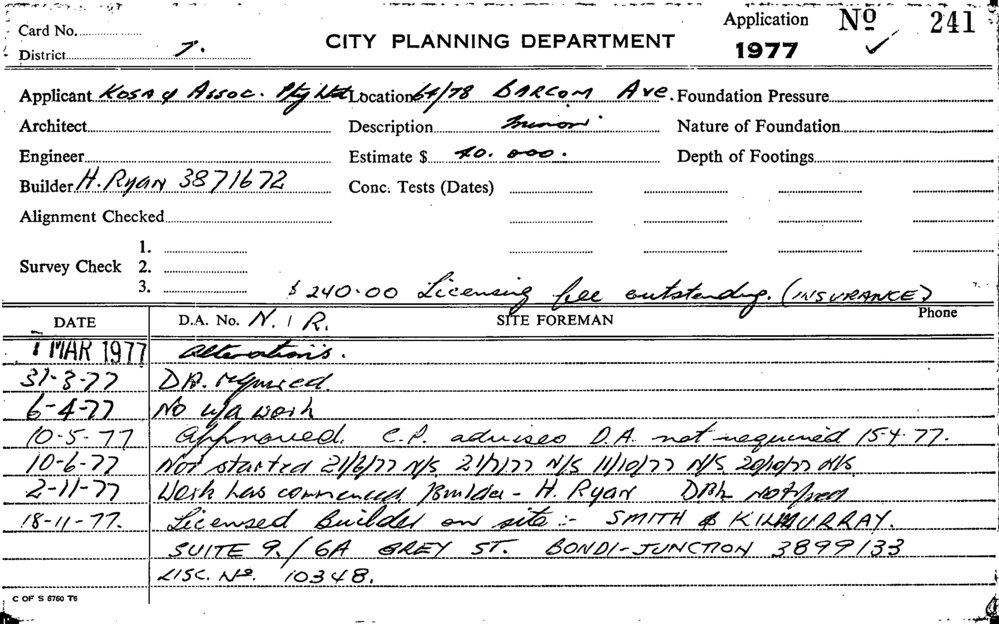 Card No.
District 7.
CITY PLANNING DEPARTMENT
Application No 241
1977
Applicant Kosa & Assoc. Pty Ltd Location 64/78 BARCOM AVE. Foundation Pressure
Architect Description Minori Nature of Foundation
Engineer Estimate $ 40.000. Depth of Footings
Builder H. Ryan 3871672 Conc. Tests (Dates)
Alignment Checked
1.
Survey Check 2.
3.
$240.00 Licensing fee outstanding. (INSURANCE)
DATE D.A. No. N.I.R. SITE FOREMAN Phone
1 MAR 1977 alterations.
31-3-77 DA. required
6-4-77 No u/a work
10-5-77 Approved. C.P. advises D.A. not required 15.4.77.
10-6-77 Not started 21/6/77 N/S 21/7/77 N/S 11/10/77 N/S 20/10/77 N/S
2-11-77 Work has commenced Builder - H. Ryan notified
18-11-77. Licensed Builder on site:- SMITH & KILMURRAY.
SUITE 9./6A GREY ST. BONDI-JUNCTION 3899133
LISC. No. 10348.
C OF S 6760 T6